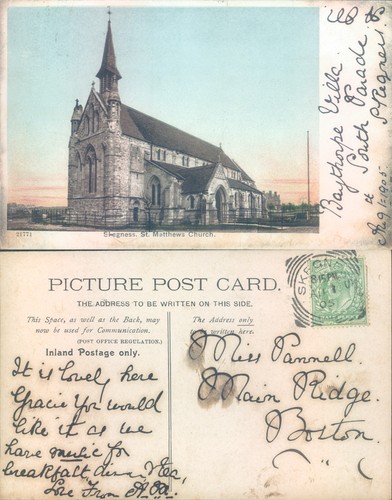 Baythorpe Villa
South Parade
Skegness
21771
Skegness. St. Matthews Church.
PICTURE POST CARD.
THE ADDRESS TO BE WRITTEN ON THIS SIDE.
This Space, as well as the Back, may
now be used for Communication.
(POST OFFICE REGULATION.)
Inland Postage only.
The Address only
to be written here.
SKEGNESS
It is lovely here
Gracie You would
like it as we
have music for
breakfast
Love From
Miss Pannell.
Main Ridge.
Boston.